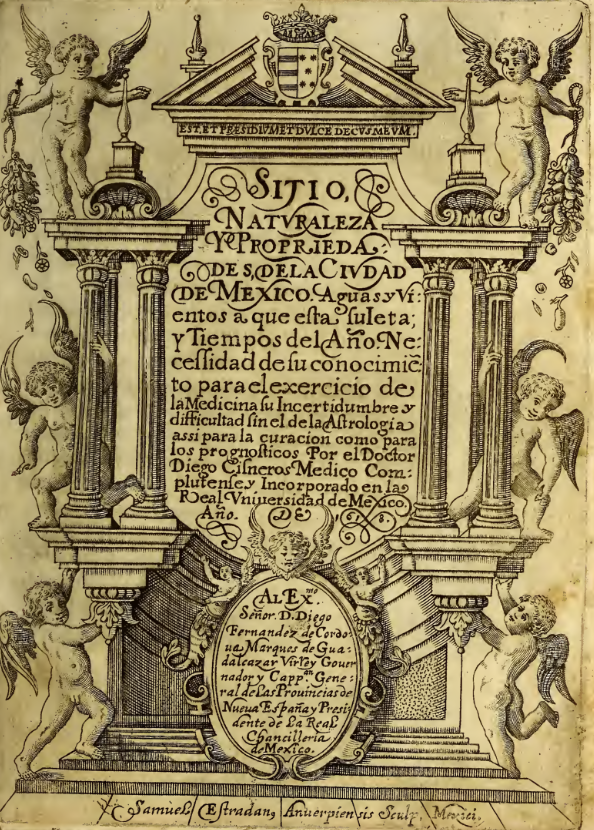 EST, ET PRESIDIVM ET DVLCE DECVS MEVM.
SITIO,
NATVRALEZA
Y PROPRIEDA:
DES, DE LA CIVDAD
DE MEXICO. Aguas y Vi:
entos a que esta suIeta;
y Tiempos del Año. Ne:
cessidad de su conocimiē:
to para el exercicio de
la Medicina su Incertidumbre y
difficultad sin el de la Astrologia
assi para la curacion como para
los prognosticos Por el Doctor
Diego Cisneros Medico Com:
plutense, y Incorporado en la
Real Vniuersidad de Mexico.
Año. DE
AL EXmo.
Señor. D. Diego
Fernandez de Cordo
ua, Marques de Gua:
dalcazar Virley Gouer
nador y Cappan Gene:
ral de Las Prouincias de
Nueua España y Presi
dente de La Real
Chancilleria
de Mexico.
Samuel Estradanq Anuerpiensis Sculp, Mexici,